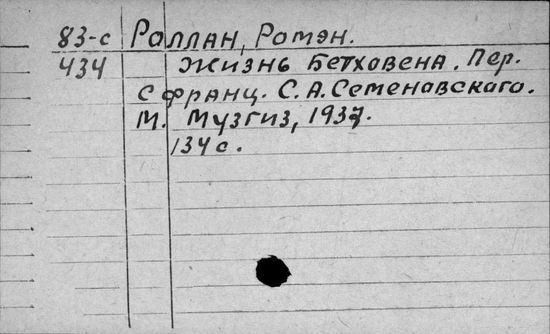 83-с Роллан, Ромэн.
434 Жизнь Бетховена. Пер.
с франц. С. А. Семеновского.
М. Музгиз, 1937.
134 с.